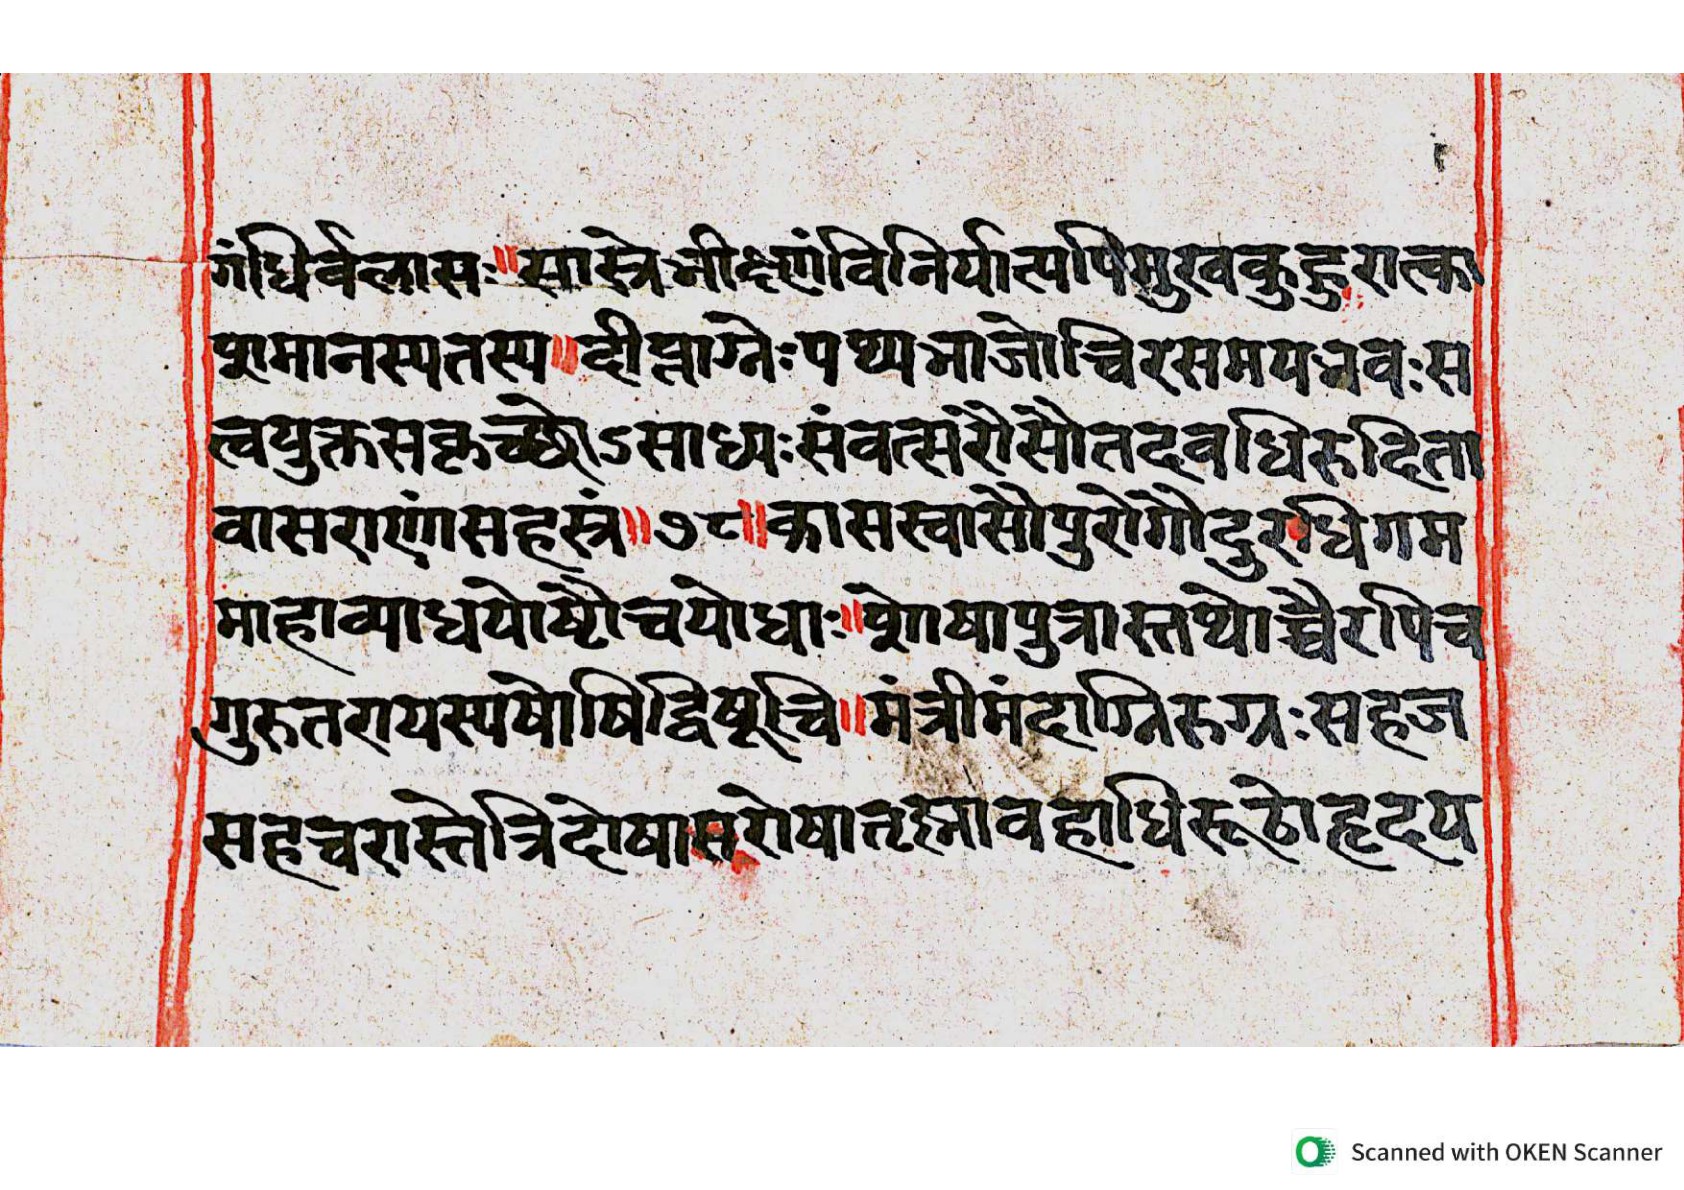 गंधिर्वलासः॥सास्त्रेभीक्ष्णंविनिर्यात्यपिमुखकुद्गुरात्का
शमानस्यतस्य॥दीप्ताग्नेःपथ्यभाजोच्चिरसमयभवःस
त्वयुक्तसकृच्छ्रोऽसाध्यःसंवत्संरोसौतदवधिरुदिता
वासराणांसहस्त्रं॥७८॥कासस्वासौपुरोगौदुरधिगम
माहाव्याधयोष्टौचयोधाः॥शोषापुत्रास्तथोच्चैरपिच
गुरुतरायस्यषोषिद्विषूचि॥मंत्रीमंदाग्निरुग्रःसहज
सहचरास्तेत्रिदोषासरोषातृष्णावहाधिरूढोहृदय
Scanned with OKEN Scanner